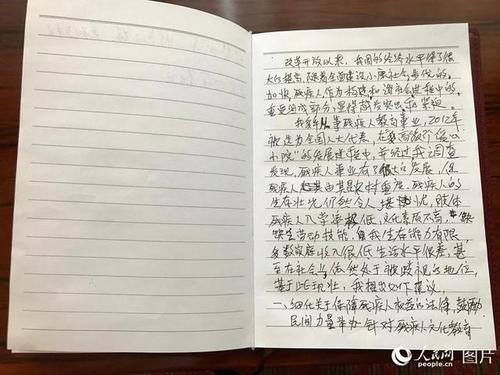 改革开放以来，我国的经济水平得了很
大的提高，随着全面建设小康社会步伐的
加快，残疾人作为构建和谐社会进程中的
重要组成部分，显得尤为突出和紧迫。
我多年从事残疾人教育事业，2012年
被选为全国人大代表，在
小院"的发展进程中，并经过我调查
发现，残疾人事业有了很大的发展，但
残疾人尤其是农村重度残疾人的
生存状况仍然令人堪忧，肢体
残疾人入学率极低，文化素质不高，缺
乏劳动技能，自我生存能力有限，
多数家庭收入很低生活水平很差，甚
至在社会上依然处于被歧视的地位，
基于此现状，我提出如下建议。
一、细化关于保障残疾人权益的法律，鼓励
民间力量举办针对残疾人文化教育
人民网 图片
people.cn